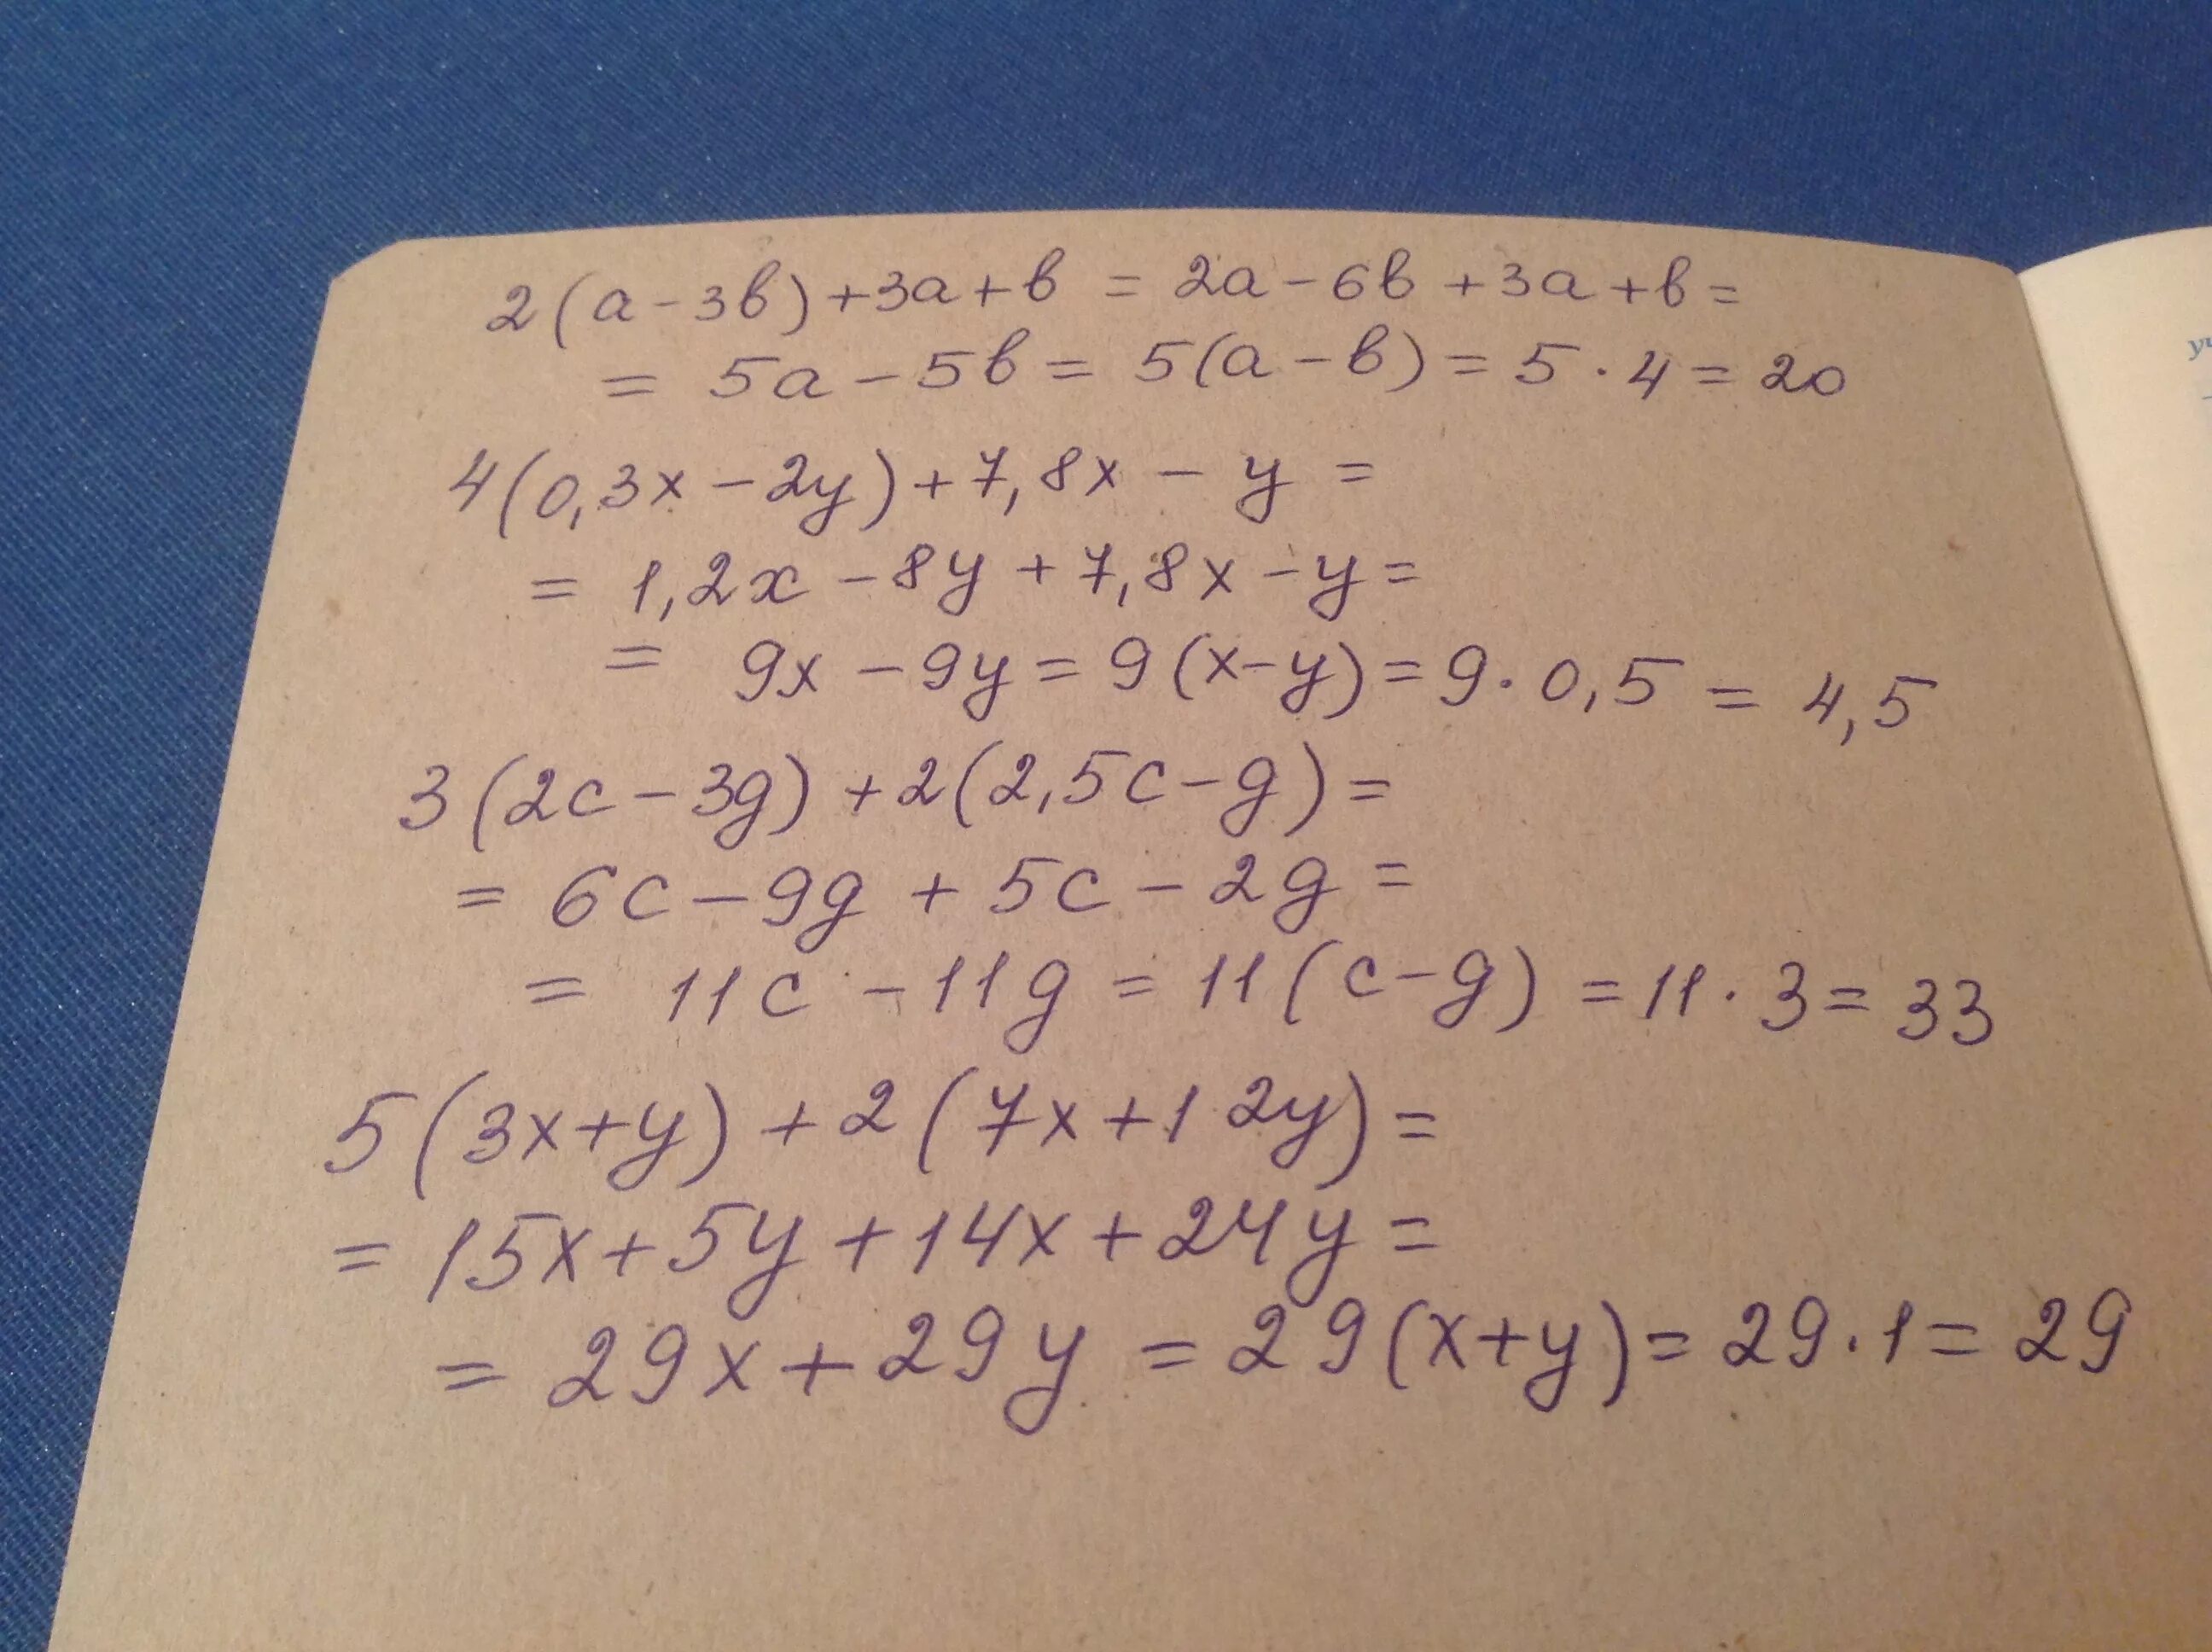 2(a-3b)+3a+b = 2a-6b+3a+b=
= 5a-5b = 5(a-b) = 5·4 = 20
4(0,3x-2y)+7,8x-y =
= 1,2x-8y+7,8x-y=
= 9x-9y = 9(x-y) = 9·0,5 = 4,5
3(2c-3g)+2(2,5c-g)=
= 6c-9g+5c-2g=
= 11c-11g = 11(c-g) = 11·3 = 33
5(3x+y)+2(7x+12y)=
= 15x+5y+14x+24y=
= 29x+29y = 29(x+y) = 29·1 = 29